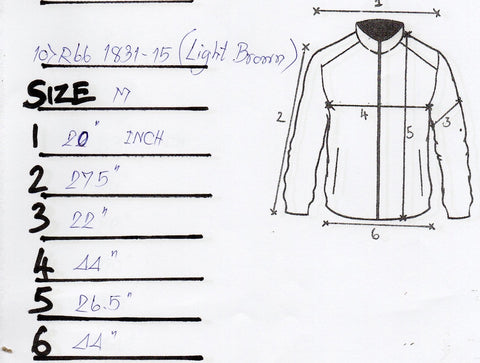 10) R66 1831-15 (Light Brown)
SIZE M
1 20" INCH
2 275"
3 22"
4 44"
5 26.5"
6 44"
1
2
4
5
3
6